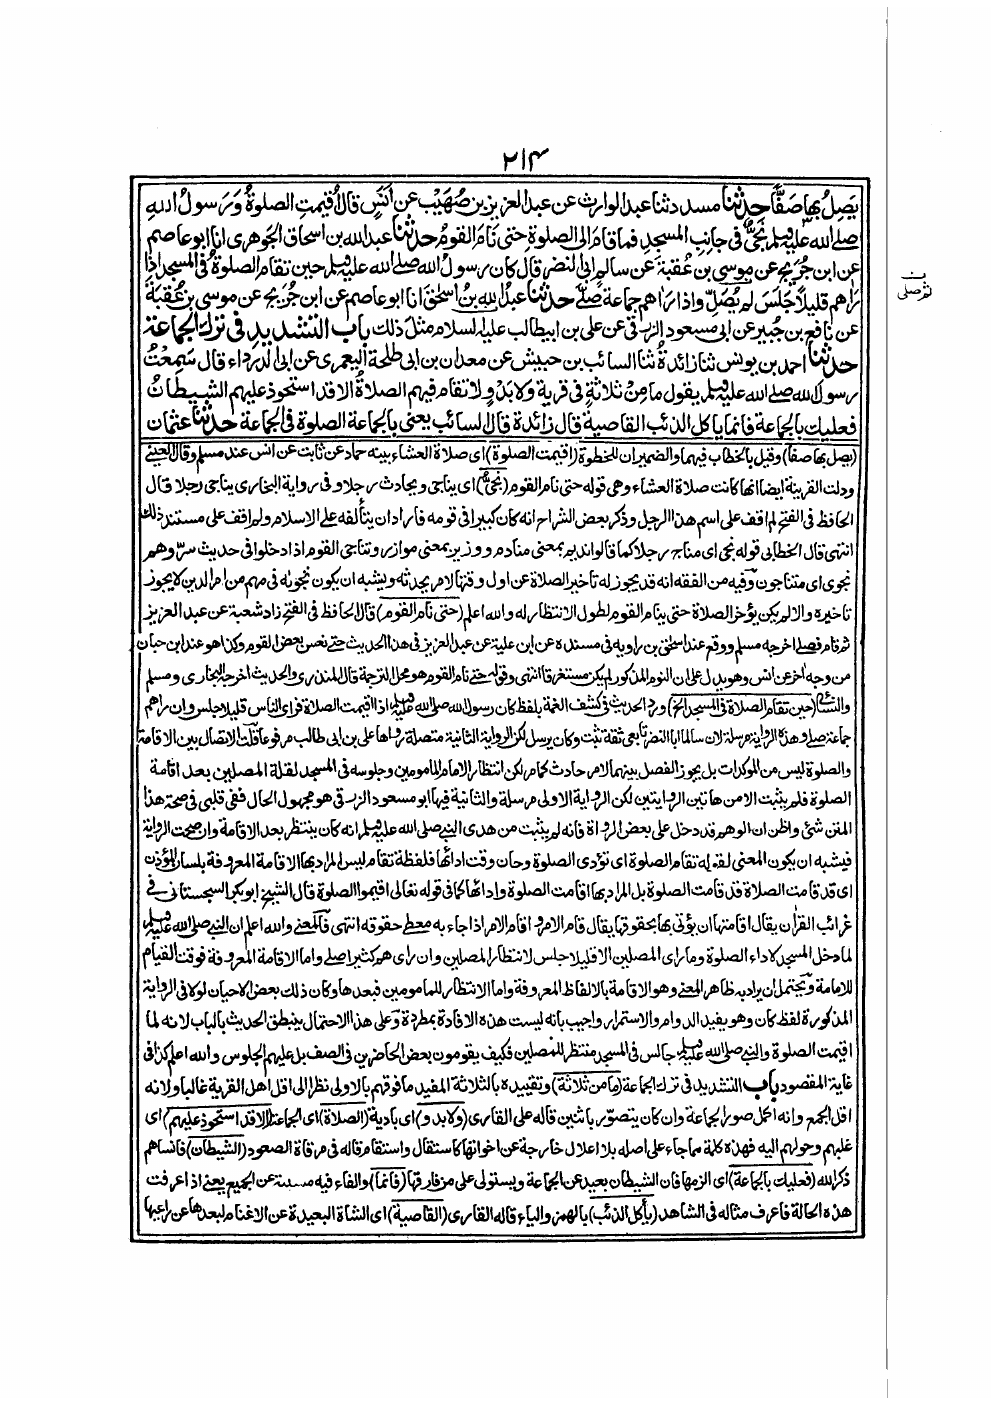 ٢١۴
يَصِلُ بها صَفًّا حدثنا مسدد ثنا عبد الوارث عن عبد العزيز بن صُهَيْب عن اَنَسٍ قال اُقيمتِ الصلوةُ وَرَسولُ اللهِ
صلے الله عليه وسلم نَجِيٌّ فى جانِبِ المسجدِ فما قامَ الى الصلوةِ حتى نامَ القومُ حدثنا عبد الله بن اسحاق الجوهرى انا ابو عاصم
عن ابن جُرَيجٍ عن موسى بن عُقبةَ عن سالمٍ ابى النضر قال كان رسولُ الله صلے الله عليه وسلم حين تقام الصلوةُ فى المسجد اذا
رَاهم قليلًا جَلَسَ لم يُصَلِّ واذا رَاهم جماعةً صلَّے حدثنا عبدُ اللهِ بنُ اسحٰق انا ابو عاصم عن ابن جُرَيجٍ عن موسى بن عُقبةَ
عن نافع بن جُبير عن ابى مسعود الزرقى عن على بن ابيطالب عليه السلام مثلَ ذلك باب التشديد فى ترك الجماعة
حدثنا احمد بن يونس ثنا زائدةُ ثنا السائب بن حبيش عن معدان بن ابى طلحة اليعمرى عن ابى الدرداء قال سَمِعْتُ
رسولَ الله صلے الله عليه وسلم يقول ما مِنْ ثلاثةٍ فى قرية ولا بَدْوٍ لا تقام فيهم الصلاة الا قد استحوذ عليهم الشيطانُ
فعليك بالجماعة فانما ياكل الذئب القاصية قال زائدة قال السائب يعنى بالجماعة الصلوة فى الجماعة حدثنا عثمان
(يصل بها صفا) وقيل بالخطاب فيهما والضميران للخطوة (اقيمت الصلوة) اى صلاة العشاء بينه حماد عن ثابت عن انس عند مسلم وقال العينى
ودلت القرينة ايضا انها كانت صلاة العشاء وهى قوله حتى نام القوم (نجىٌّ) اى يناجى ويحادث رجلا وفى رواية البخارى يناجى رجلا قال
الحافظ فى الفتح لم اقف على اسم هذا الرجل وذكر بعض الشراح انه كان كبيرا فى قومه فاراد ان يتألفه على الاسلام ولم اقف على مستند ذلك
انتهى قال الخطابى قوله نجى اى مناج رجلا كما قالوا نديم بمعنى منادم ووزير بمعنى موازر وتناجى القوم اذا دخلوا فى حديث سرّ وهم
نجوى اى متناجون وفيه من الفقه انه قد يجوز له تاخير الصلاة عن اول وقتها لامر يحدثه ويشبه ان يكون نجواه فى مهم من امر الدين لا يجوز
تاخيره والا لم يكن يؤخر الصلاة حتى ينام القوم لطول الانتظار له والله اعلم (حتى نام القوم) قال الحافظ فى الفتح زاد شعبة عن عبد العزيز
ثم قام فصلى اخرجه مسلم ووقع عند اسحق بن راويه فى مسنده عن ابن علية عن عبد العزيز فى هذا الحديث حتى نعس بعض القوم وكذا هو عند ابن حبان
من وجه اخر عن انس وهو يدل على ان النوم المذكور لم يكن مستغرقا انتهى وقوله حتى نام القوم هو محل الترجمة قال المنذرى والحديث اخرجه البخارى ومسلم
والنسائى (حين تقام الصلاة فى المسجد الخ) ورد الحديث فى كشف الغمة بلفظ كان رسول الله صلى الله عليه وسلم اذا اقيمت الصلاة فراى الناس قليلا جلس وان راهم
جماعة صلى وهذه الرواية مرسلة لان سالما ابا النضر تابعى ثقة ثبت وكان يرسل لكن الرواية الثانية متصلة رواها على بن ابى طالب مرفوعا قلت الاتصال بين الاقامة
والصلوة ليس من المؤكدات بل يجوز الفصل بينهما لامر حادث كما مر لكن انتظار الامام للمامومين وجلوسه فى المسجد لقلة المصلين بعد اقامة
الصلوة فلم يثبت الا من هاتين الروايتين لكن الرواية الاولى مرسلة والثانية فيها ابو مسعود الزرقى هو مجهول الحال ففى قلبى فى صحة هذا
المتن شئ واظن ان الوهم قد دخل على بعض الرواة فانه لم يثبت من هدى النبى صلى الله عليه وسلم انه كان ينتظر بعد الاقامة وان صحت الرواية
فيشبه ان يكون المعنى لقوله تقام الصلوة اى تؤدى الصلوة وحان وقت ادائها فلفظة تقام ليس المراد بها الاقامة المعروفة بلسان المؤذن
اى قد قامت الصلاة قد قامت الصلوة بل المراد بها اقامت الصلوة واداءها كما فى قوله تعالى اقيموا الصلوة قال الشيخ ابو بكر السجستانى فى
غرائب القرآن يقال اقامتها ان يؤتى بها بحقوقها يقال قام الامر واقام الامر اذا جاء به معطى حقوقه انتهى فالمعنى والله اعلم ان النبى صلى الله عليه وسلم
لما دخل المسجد لاداء الصلوة وما راى المصلين الا قليلا جلس لانتظار المصلين وان راى هم كثيرا صلى واما الاقامة المعروفة فوقت القيام
للامامة ويحتمل ان يراد به ظاهر المعنى وهو الاقامة بالالفاظ المعروفة واما الانتظار للمامومين فبعدها وكان ذلك بعض الاحيان لولا فى الرواية
المذكورة لفظ كان وهو يفيد الدوام والاستمرار واجيب بانه ليست هذه الافادة بمطردة وعلى هذا الاحتمال ينطبق الحديث بالباب لانه لما
اقيمت الصلوة والنبى صلى الله عليه وسلم جالس فى المسجد منتظر للمصلين فكيف يقومون بعض الحاضرين فى الصف بل عليهم الجلوس والله اعلم كذا فى
غاية المقصود باب التشديد فى ترك الجماعة (ما من ثلاثة) وتقييده بالثلاثة المفيد ما فوقهم بالاولى نظرا الى اقل اهل القرية غالبا ولانه
اقل الجمع وانه اكمل صور الجماعة وان كان يتصوّر باثنين قاله على القارى (ولا بدو) اى بادية (الصلاة) اى الجماعة (الا قد استحوذ عليهم) اى
غلبهم وحولهم اليه فهذه كلمة مما جاء على اصله بلا اعلال خارجة عن اخواتها كاستقال واستقام قاله فى مرقاة الصعود (الشيطان) فانساهم
ذكر الله (فعليك بالجماعة) اى الزمها فان الشيطان بعيد عن الجماعة ويستولى على من فارقها (فانما) والفاء فيه مسببة عن الجميع يعنى اذا عرفت
هذه الحالة فاعرف مثاله فى الشاهد (يأكل الذئب) بالهمز والياء قاله القارى (القاصية) اى الشاة البعيدة عن الاغنام لبعدها عن راعيها
ن
لم يصلى